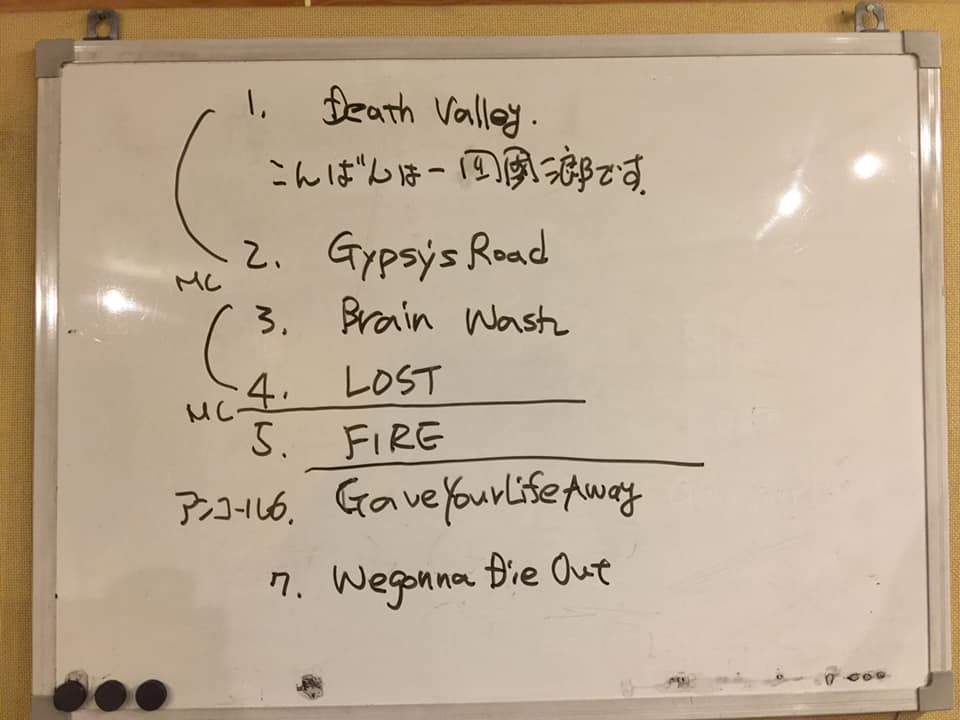 1. Death Valley.
こんばんはー 郎です.
2. Gypsy's Road
MC
3. Brain Wash
4. LOST
MC
5. FIRE
アンコール6. Gave Your Life Away
7. We gonna Die Out